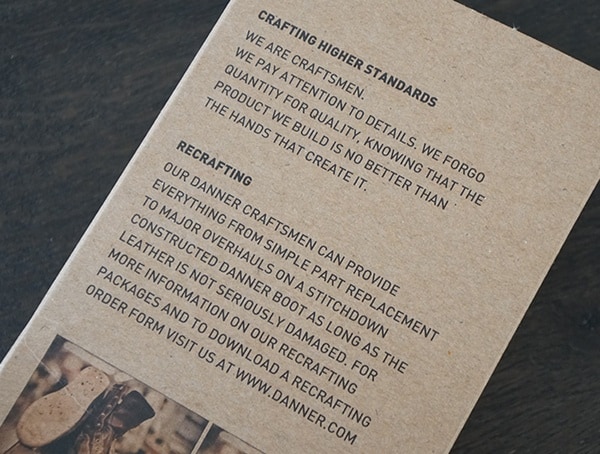 CRAFTING HIGHER STANDARDS
WE ARE CRAFTSMEN.
WE PAY ATTENTION TO DETAILS. WE FORGO
QUANTITY FOR QUALITY, KNOWING THAT THE
PRODUCT WE BUILD IS NO BETTER THAN
THE HANDS THAT CREATE IT.
RECRAFTING
OUR DANNER CRAFTSMEN CAN PROVIDE
EVERYTHING FROM SIMPLE PART REPLACEMENT
TO MAJOR OVERHAULS ON A STITCHDOWN
CONSTRUCTED DANNER BOOT AS LONG AS THE
LEATHER IS NOT SERIOUSLY DAMAGED. FOR
MORE INFORMATION ON OUR RECRAFTING
PACKAGES AND TO DOWNLOAD A RECRAFTING
ORDER FORM VISIT US AT WWW.DANNER.COM